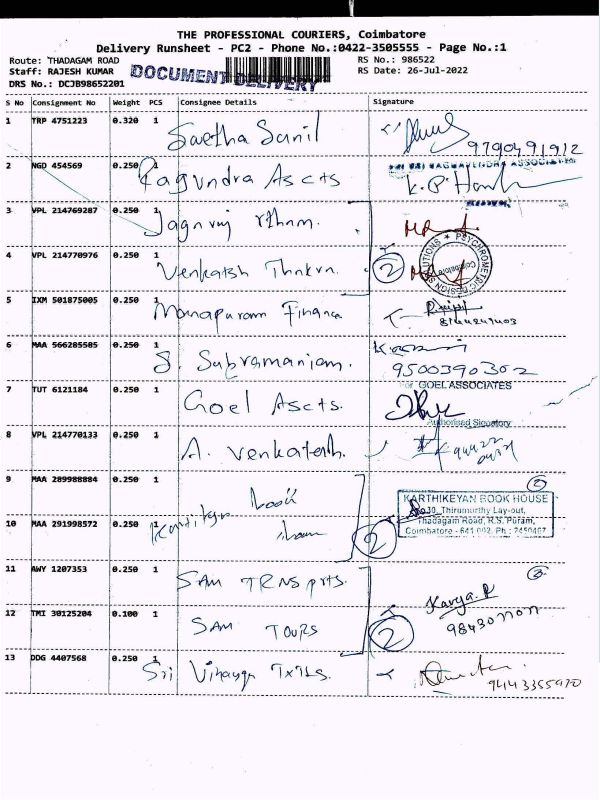 THE PROFESSIONAL COURIERS, Coimbatore
Delivery Runsheet - PC2 - Phone No.:0422-3505555 - Page No.:1
Route: THADAGAM ROAD RS No.: 986522
Staff: RAJESH KUMAR DOCUMENT DELIVERY RS Date: 26-Jul-2022
DRS No.: DCJB98652201
S No Consignment No Weight PCS Consignee Details Signature
1 TRP 4751223 0.320 1 Swetha Sunil 9790491912
2 NGD 454569 0.250 1 Ragvndra Ascts
3 VPL 214769287 0.250 1
4 VPL 214770976 0.250 1 Venkatsh 2
PSYCHROMETRIC DESIGN SOLUTIONS
Coimbatore
5 IXM 501875005 0.250 1 Manapuram Finance
6 MAA 566285585 0.250 1 S. Subramaniam. 9500390302
7 TUT 6121184 0.250 1 Goel Ascts. For GOEL ASSOCIATES
Authorised Signatory
8 VPL 214770133 0.250 1 A. Venkatesh.
9 MAA 289988884 0.250 1 book 2
KARTHIKEYAN BOOK HOUSE
30, Thirumurthy Lay-out,
10 MAA 291998572 0.250 1 2 Thadagam Road, R.S. Puram,
Coimbatore - 641 002. Ph : 2450467
11 AWY 1207353 0.250 1 SAM TRNSprts. 3
12 TMI 30125204 0.100 1 SAM TOURS 2 Kavya. R
13 DDG 4407568 0.250 1 Sri Vinayga Txtls.